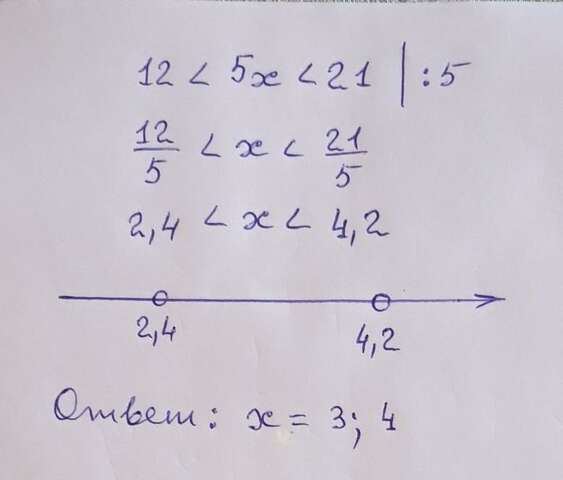 12 < 5x < 21 | : 5
12/5 < x < 21/5
2,4 < x < 4,2
2,4 4,2
Ответ: x = 3; 4